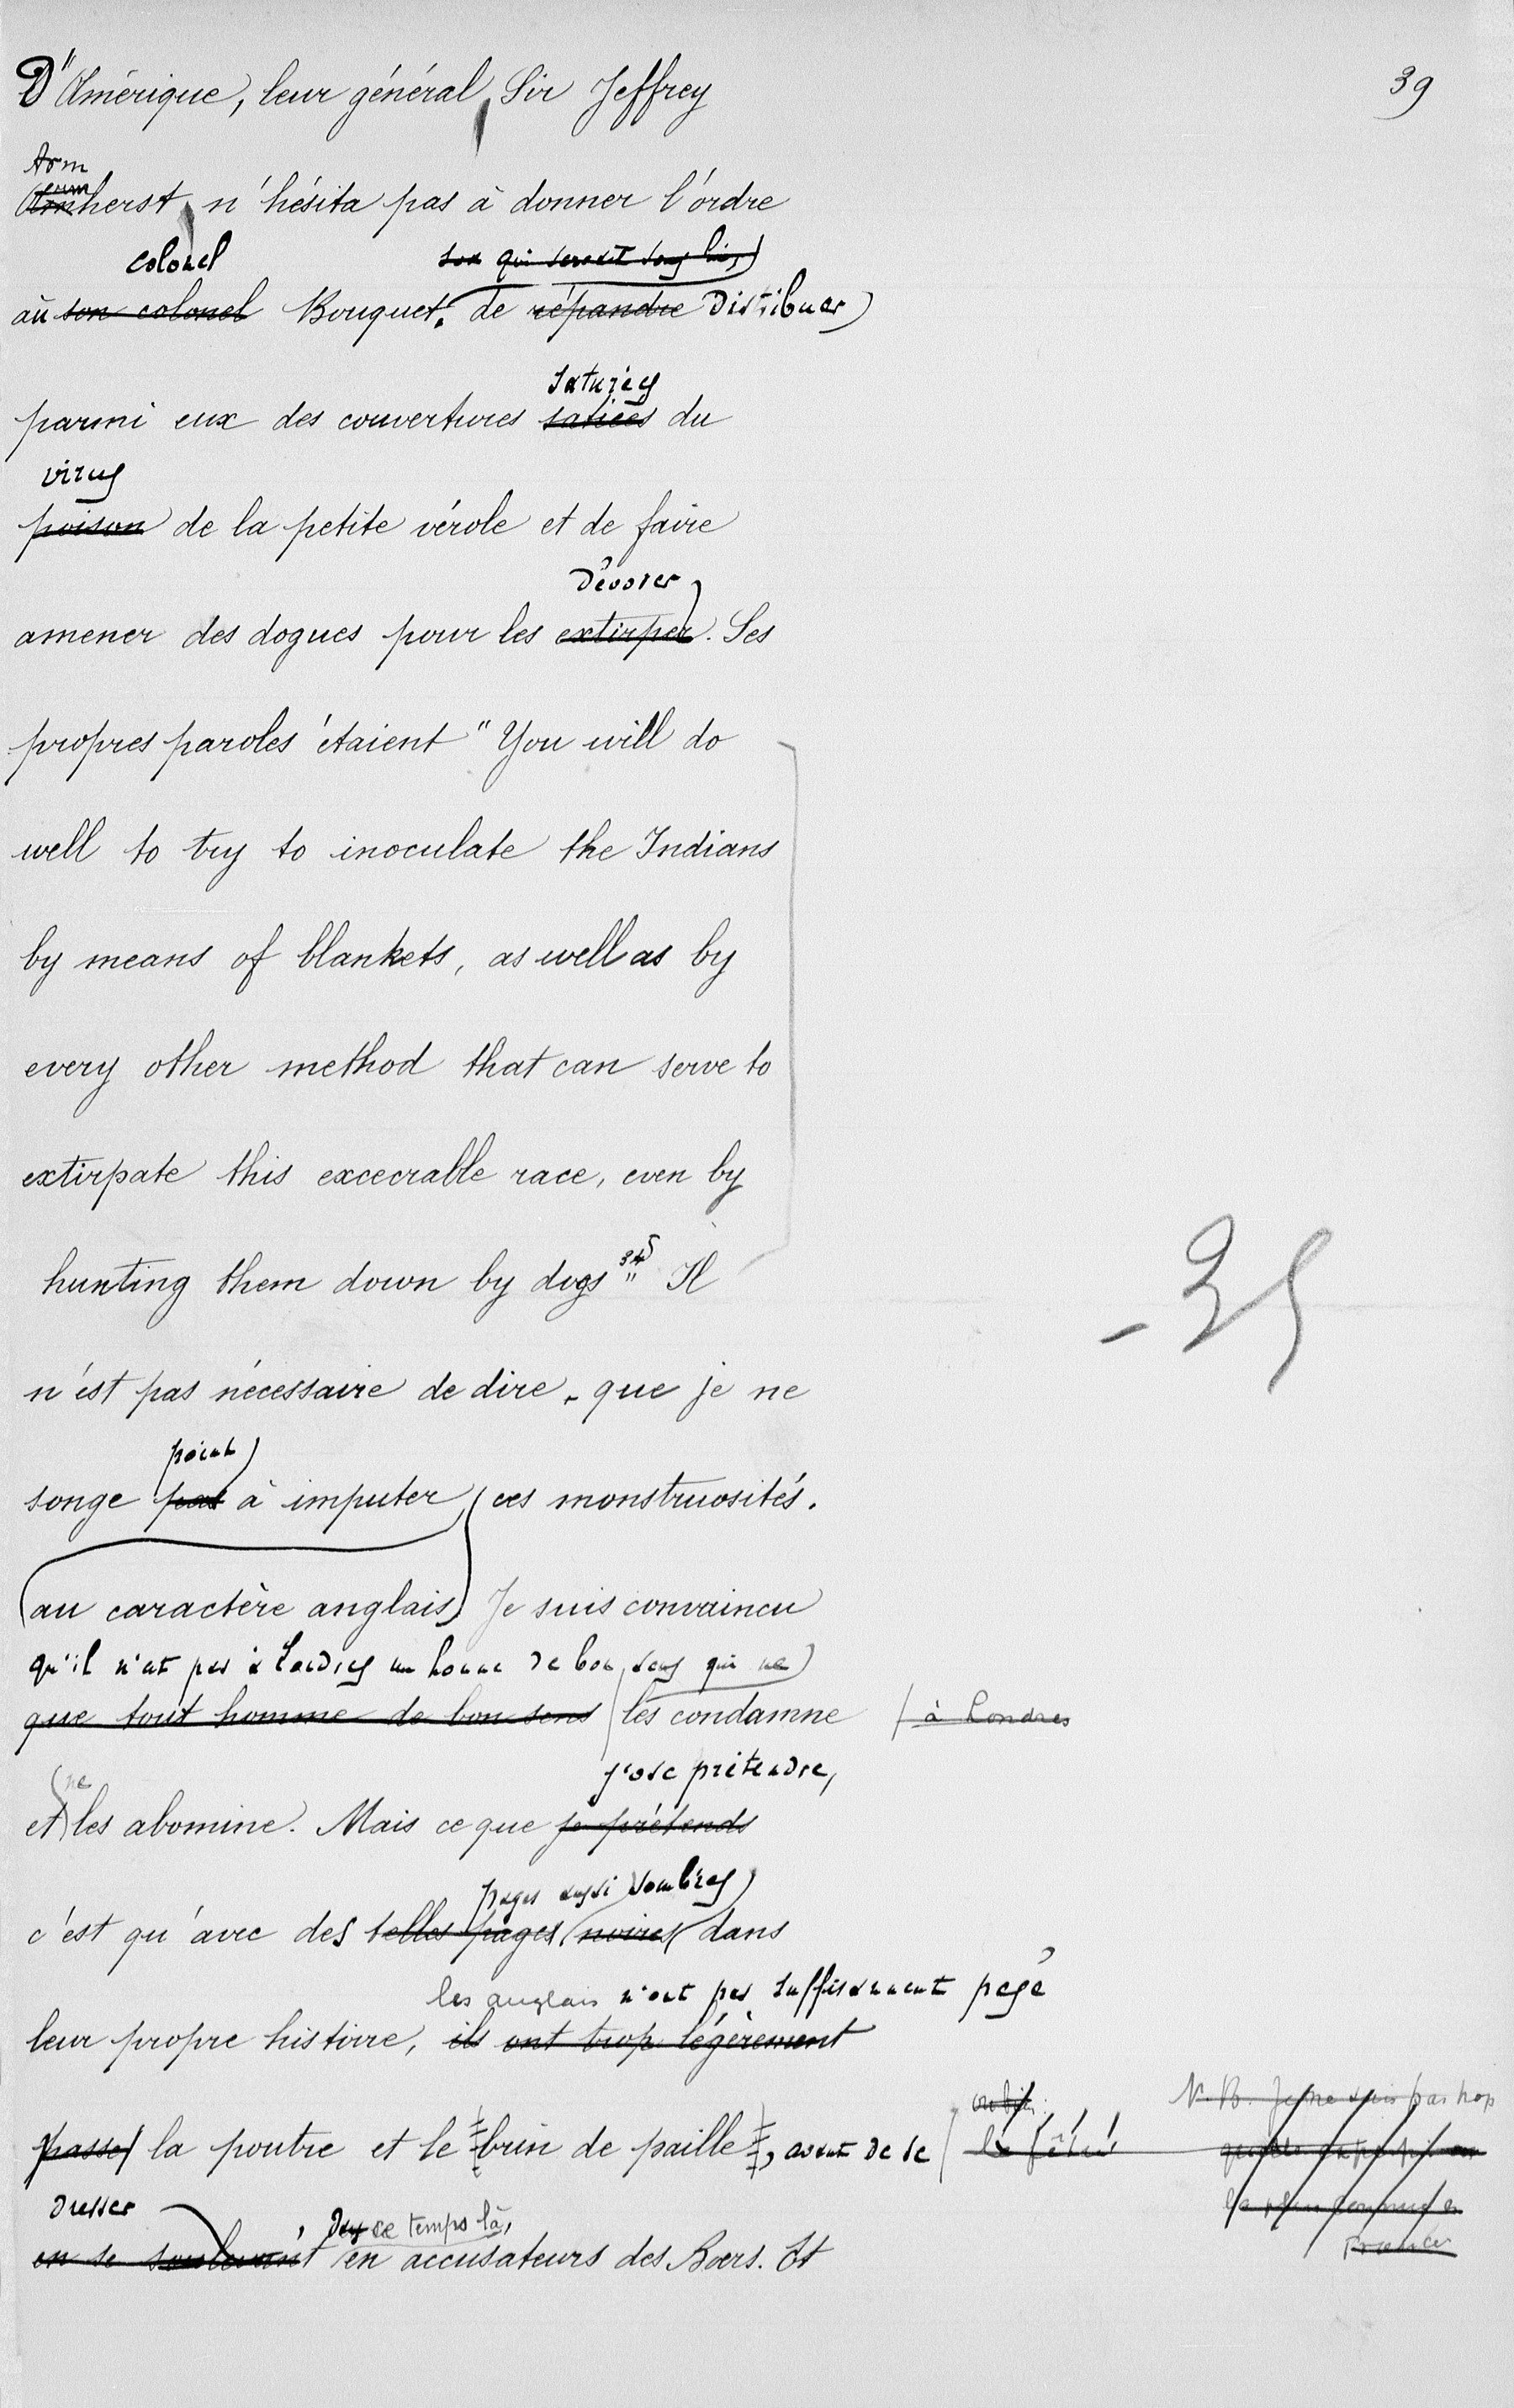 39
D'Amérique, leur général, Sir Jeffrey
Am
Amherst, n'hésita pas à donner l'ordre
colonel
au son colonel Bouquet, de répandre Distribuer
saturées
parmi eux des couvertures satiées du
virus
poison de la petite vérole et de faire
Dévorer
amener des dogues pour les extirper. Ses
propres paroles étaient "You will do
well to try to inoculate the Indians
by means of blankets, as well as by
every other method that can serve to
extirpate this excecrable race, even by
hunting them down by dogs" Il
- 35
n'est pas nécessaire de dire, que je ne
point
songe pas à imputer ces monstruosités.
au caractère anglais Je suis convaincu
qu'il n'est pas à Londres un homme de bon sens qui ne
que tout homme de bon sens les condamne à Londres
ne j'ose prétendre,
et les abomine. Mais ce que je prétends
pages aussi sombres
c'est qu'avec des telles pages noires dans
les anglais n'ont pas suffisamment pesé
leur propre histoire, ils ont trop légèrement
N. B. Je ne suis pas trop
passé la poutre et le brin de paille, avant de se
Dresser
ce temps là,
en se soulevant en accusateurs des Boers. Et